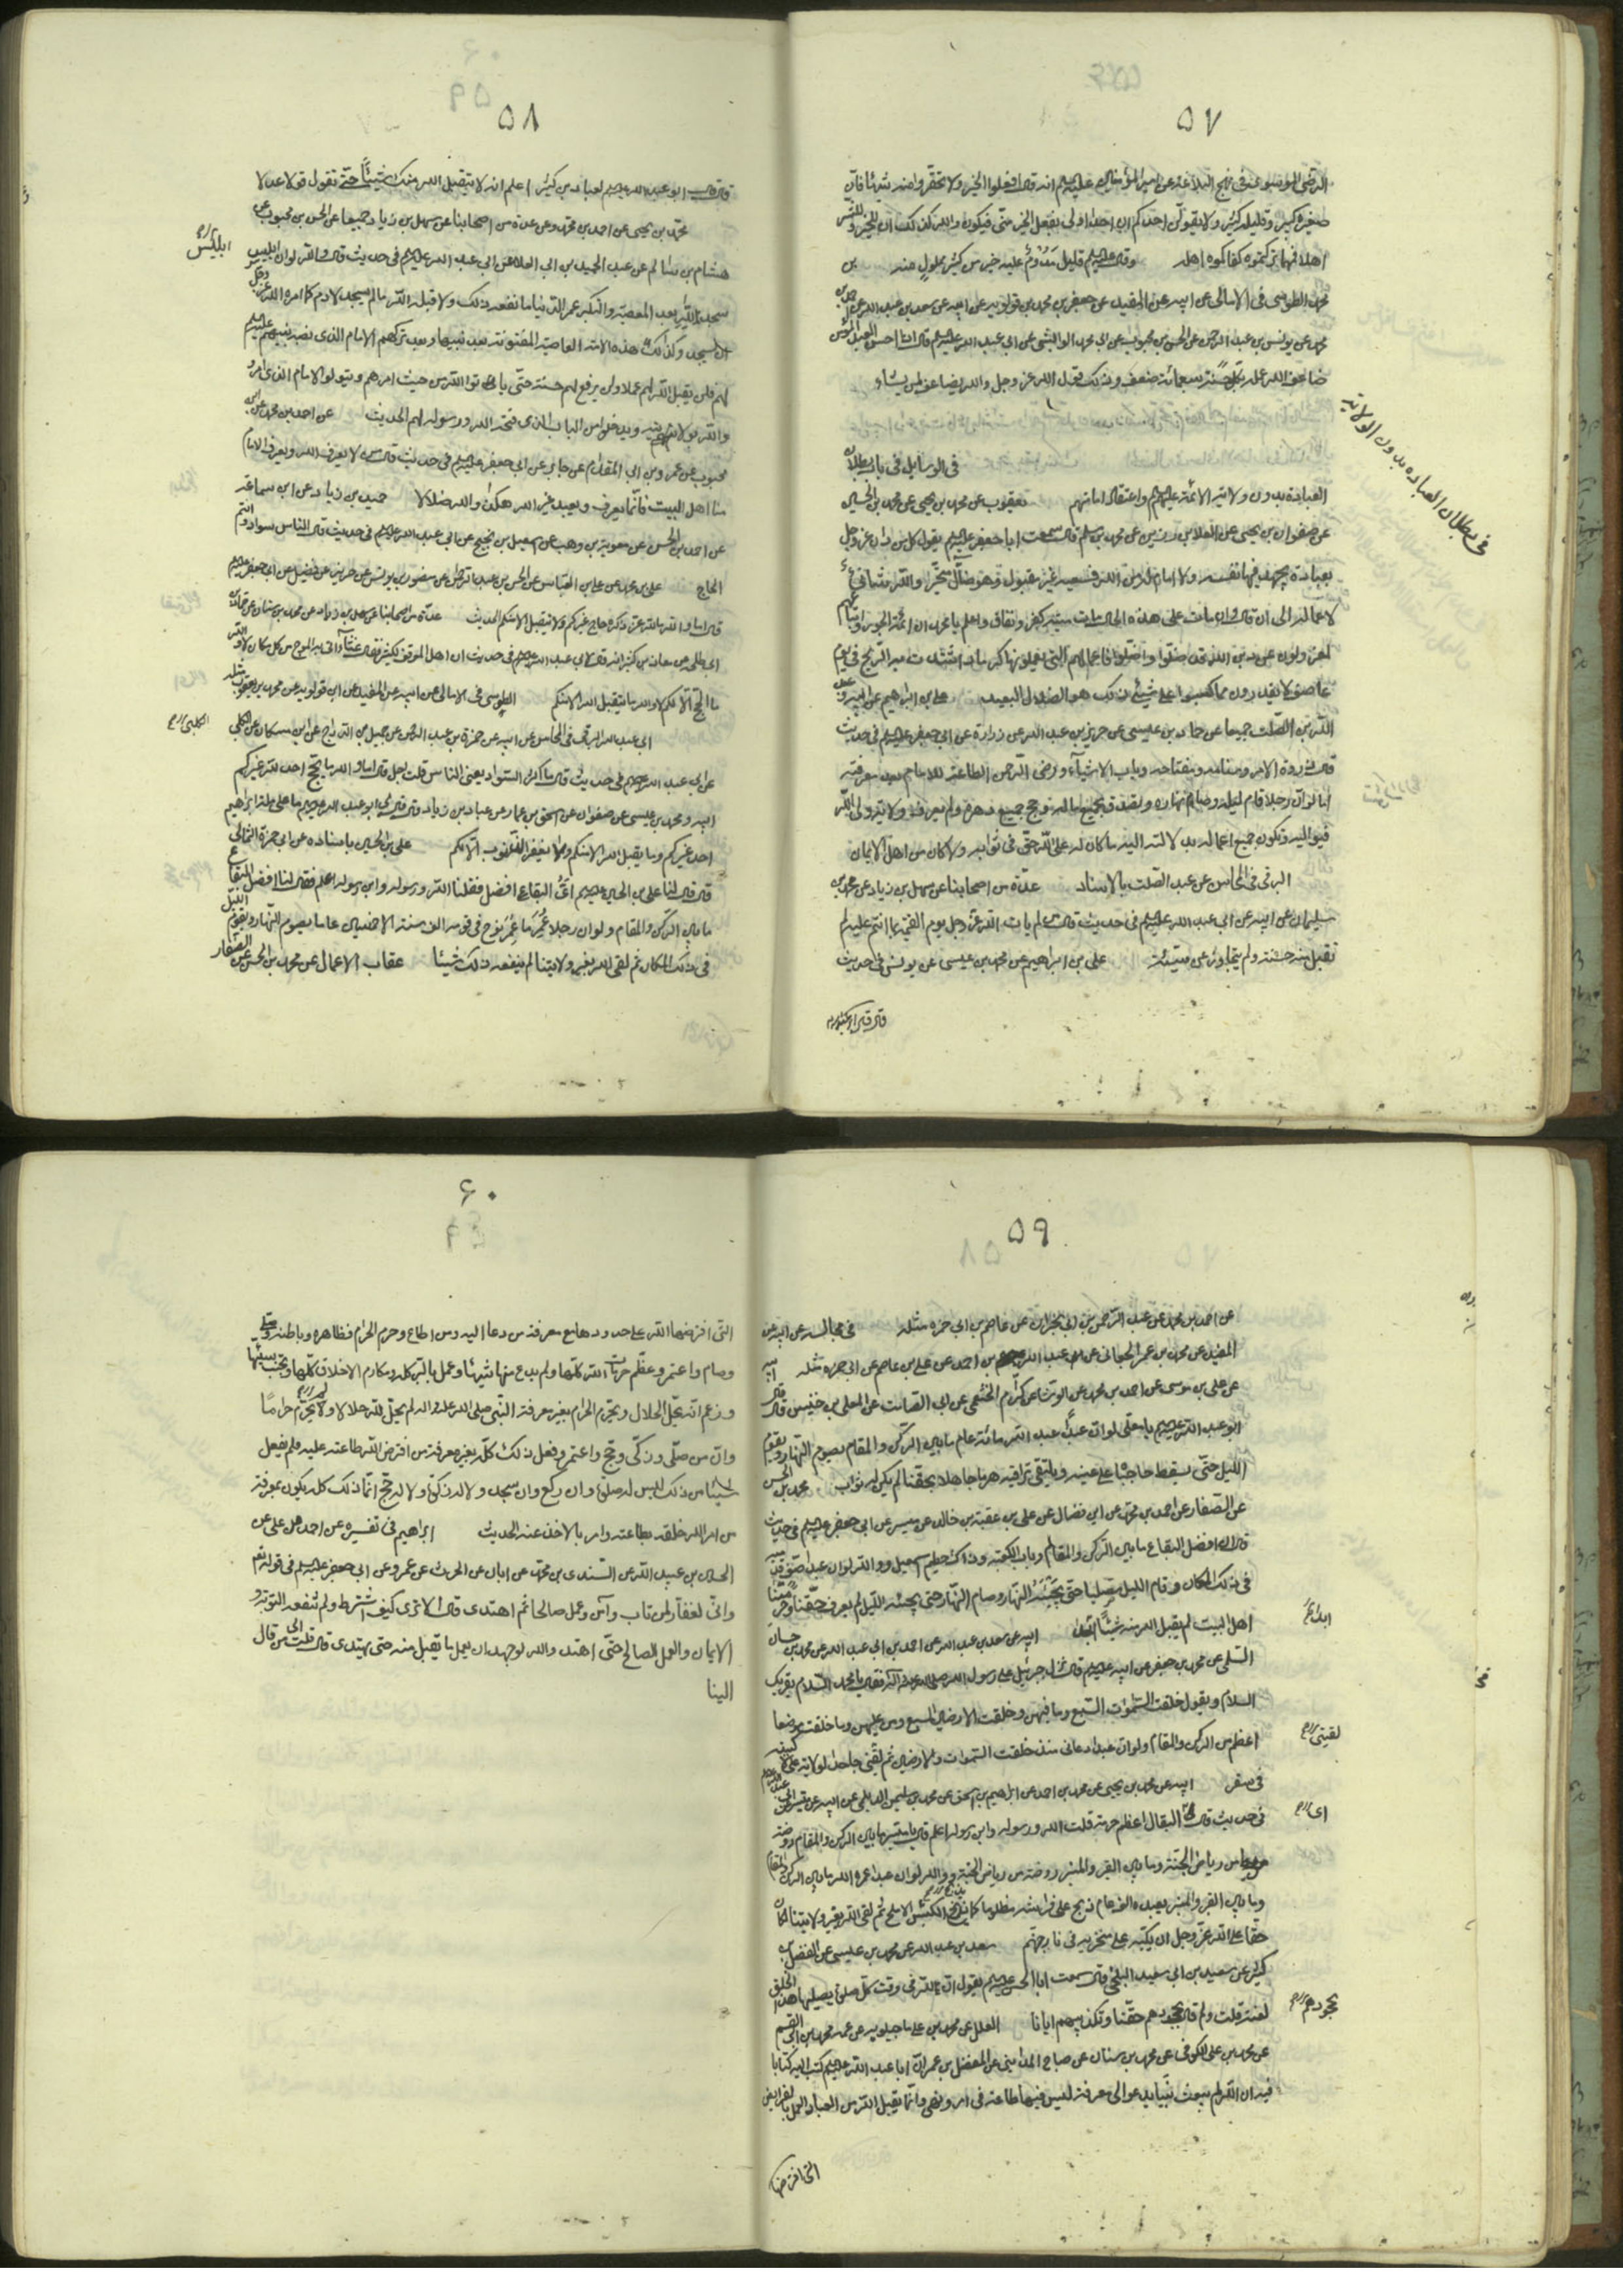 ٥٧
الرضى الموسوى فى نهج البلاغه عن امير المؤمنين عليه السلم انه قال افعلوا الخير ولا تحقروا منه شيئا فانّ
صغيره كبير وقليله كثير ولا يقولنّ احدكم ان احدا اولى بفعل الخير منّى فيكون والله كذلك ان للخير وللشر
اهلا فمهما تركتموه كفاكموه اهله وقال عليه السلم قليل مدوم عليه خير من كثير مملول منه
محمد الطوسى فى الامالى عن ابيه عن المفيد عن جعفر بن محمد بن قولويه عن ابيه عن سعد بن عبد الله عن
محمد عن يونس بن عبد الرحمن عن الحسن بن محبوب عن ابى محمد الوابشى عن ابى عبد الله عليه السلم قال اذا احسن العبد المؤمن
ضاعف الله عمله بكل حسنة سبعمائة ضعف وذلك قول الله عز وجل والله يضاعف لمن يشاء
فى بطلان العباده بدون الولايه
فى الوسايل فى باب بطلان
العبادة بدون ولاية الائمة عليهم السلم واعتقاد امامتهم يعقوب عن محمد بن يحيى عن محمد بن الحسين
عن صفوان بن يحيى عن العلا بن رزين عن محمد بن مسلم قال سمعت ابا جعفر عليه السلم يقول كل من دان الله عز وجل
بعبادة يجهد فيها نفسه ولا امام له من الله فسعيه غير مقبول وهو ضالّ متحيّر والله شانئ
لاعماله الى ان قال وان مات على هذه الحال مات ميتة كفر ونفاق واعلم يا محمد ان ائمة الجور واتباعهم
لمعزولون عن دين الله قد ضلّوا واضلّوا فاعمالهم التى يعملونها كرماد اشتدّت به الريح فى يوم
عاصف لا يقدرون مما كسبوا على شيء ذلك هو الضلال البعيد على بن ابراهيم عن ابيه وعبد
الله بن الصّلت جميعا عن حماد بن عيسى عن حريز بن عبد الله عن زرارة عن ابى جعفر عليه السلم فى حديث
قال ذروة الامر وسنامه ومفتاحه وباب الاشياء ورضى الرحمن الطاعة للامام بعد معرفته
اما لو انّ رجلا قام ليله وصام نهاره وتصدق بجميع ماله وحج جميع دهره ولم يعرف ولاية ولىّ الله
فيواليه وتكون جميع اعماله بدلالته اليه ما كان له على الله حقّ فى ثوابه ولا كان من اهل الايمان
البرقى فى المحاسن عن عبد الله بن الصلت بالاسناد عدّة من اصحابنا عن سهل بن زياد عن محمد بن
سليمان عن ابيه عن ابى عبد الله عليه السلم فى حديث قال من لم يات الله عز وجل يوم القيمة بما انتم عليه لم
تقبل منه حسنة ولم يتجاوز عن سيئة على بن ابراهيم عن محمد بن عيسى عن يونس فى حديث
قال قال ابو عبد الله
٥٨
قال قال ابو عبد الله عليه السلم لعباد بن كثير اعلم انه لا يتقبل الله منك شيئا حتى تقول قولا عدلا
محمد بن يحيى عن احمد بن محمد وعن عدة من اصحابنا عن سهل بن زياد جميعا عن الحسن بن محبوب عن
هشام بن سالم عن عبد الحميد بن ابى العلا عن ابى عبد الله عليه السلم فى حديث قال والله لو ان ابليس
ابليس
سجد لله بعد المعصية والتكبر عمر الدنيا ما نفعه ذلك ولا قبله الله ما لم يسجد لادم كما امره الله عز وجل
ان يسجد وكذلك هذه الامة العاصية المفتونة بعد نبيها وبعد تركهم الامام الذى نصبه نبيهم عليهم
لهم فلن يقبل الله لهم عملا ولن يرفع لهم حسنة حتّى ياتوا الله من حيث امرهم ويتولوا الامام الذى امروا
بولايته ويدخلوا من الباب الذى فتحه الله ورسوله لهم الحديث عن احمد بن محمد عن ابن
محبوب عن عمرو بن ابى المقدام عن جابر عن ابى جعفر عليه السلم فى حديث قال من لا يعرف الله ويعرف الامام
منا اهل البيت فانّما يعرف ويعبد غير الله هكذا والله ضلالا حميد بن زياد عن ابن سماعة
عن احمد بن الحسن عن معوية بن وهب عن اسمعيل بن نجيح عن ابى عبد الله عليه السلم فى حديث قال الناس سواد وانتم
الحاج على بن محمد عن على بن العباس عن الحسن بن عبد الرحمن عن منصور بن يونس عن حريز عن فضيل عن ابى جعفر عليه السلم
قال اما والله ما لله عز ذكره حاج غيركم ولا يتقبل الا منكم الحديث عدّة من اصحابنا عن سهل بن زياد عن محمد بن سنان عن حماد بن
ابى طلحة عن معاذ بن كثير انه قال لابى عبد الله عليه السلم فى حديث ان اهل الموقف لكثير فقال غثاء اتى به الموج من كل مكان لا والله
ما الحج الا لكم لا والله ما يتقبل الله الا منكم الطوسى فى الامالى عن ابيه عن المفيد عن ابن قولويه عن محمد بن يعقوب مثله
ابى عبد الله البرقى فى المحاسن عن ابيه عن حمزة بن عبد الله عن جميل بن دراج عن ابن مسكان عن الكلبى
الكلبى
عن ابى عبد الله عليه السلم فى حديث قال ما اكثر السواد يعنى الناس قلت اجل قال اما والله ما يحج احد لله غيركم
ابيه ومحمد بن عيسى عن صفوان عن اسحق بن عمار عن عباد بن زياد قال قال لى ابو عبد الله عليه السلم ما على ملة ابراهيم
احد غيركم وما يقبل الله الا منكم ولا يغفر الذنوب الا لكم على بن الحسين باسناده عن ابى حمزة الثمالى
قال قال لنا على بن الحسين عليه السلم اىّ البقاع افضل فقلنا الله ورسوله وابن رسوله اعلم فقال لنا افضل البقاع
ما بين الركن والمقام ولو ان رجلا عمّر ما عمّر نوح فى قومه الف سنة الا خمسين عاما يصوم النهار ويقوم الليل
فى ذلك المكان ثم لقى الله بغير ولايتنا لم ينفعه ذلك شيئا عقاب الاعمال عن محمد بن الحسن عن الصفار
٥٩
عن احمد بن محمد عن عبد الرحمن بن ابى نجران عن عاصم عن ابى حمزه مثله فى مجالسه عن ابيه عن
المفيد عن محمد بن عمر الجعابى عن عبد الله بن احمد عن على بن عاصم عن ابى حمزه مثله ابيه
عن على بن موسى عن احمد بن محمد عن الوشا عن كرّام الخثعمى عن ابى الصامت عن المعلى بن خنيس قال قال
ابو عبد الله عليه السلم يا معلّى لو انّ عبدا عبد الله مائة عام ما بين الركن والمقام يصوم النهار ويقوم
الليل حتّى يسقط حاجباه على عينيه ويلتقى تراقيه هرما جاهلا بحقّنا لم يكن له ثواب محمد بن الحسن
عن الصفار عن احمد بن محمد عن ابن فضال عن على بن عقبة بن خالد عن ميسر عن ابى جعفر عليه السلم فى حديث
قال ان افضل البقاع ما بين الركن والمقام وباب الكعبة وذاك حطيم اسمعيل ووالله لو ان عبدا صفّ قدميه
فى ذلك المكان وقام الليل مصليا حتّى يجيئه النهار وصام النهار حتى يجيئه الليل لم يعرف حقّنا وحرمتنا
اهل البيت لم يقبل الله منه شيئا ابدا ابيه عن سعد بن عبد الله عن احمد بن ابى عبد الله عن محمد بن حسان
ابدا
السلمى عن محمد بن جعفر عن ابيه عليه السلم قال نزل جبرئيل على رسول الله صلى الله عليه وآله فقال يا محمد السلام يقرئك
السلام ويقول خلقت السموات السبع وما فيهن وخلقت الارضين السبع ومن عليهن وما خلقت موضعا
اعظم من الركن والمقام ولو ان عبدا دعانى منذ خلقت السموات والارضين ثم لقينى جاحدا لولاية على لاكببته
لقينى
فى سقر ابيه عن محمد بن يحيى عن محمد بن احمد عن ابراهيم بن اسحق عن محمد بن سليمن الديلمى عن ابيه عن ميسر عن ابى عبد الله
فى حديث قال اىّ البقاع اعظم حرمة قلت الله ورسوله وابن رسوله اعلم قال يا ميسر ما بين الركن والمقام روضة
اى
من رياض الجنّة وما بين القبر والمنبر روضة من رياض الجنة ووالله لو ان عبدا عمره الله ما بين الركن والمقام
وما بين القبر والمنبر يعبده الف عام ثم ذبح على فراشه مظلوما كما يذبح الكبش الاملح ثم لقى الله بغير ولايتنا لكان
حقّا على الله عزّ وجل ان يكبّه على منخريه فى نار جهنّم سعد بن عبد الله عن محمد بن عيسى عن الفضل بن
كثير عن سعيد بن ابى سعيد البلخى قال سمعت ابا الحسن عليه السلم يقول انّ لله فى وقت كلّ صلوة يصليها هذا الخلق
لعنة قلت ولم قال بجحودهم حقّنا وتكذيبهم ايانا العلل عن محمد بن على ماجيلويه عن عمه محمد بن ابى القسم
بجحودهم
عن محمد بن على الكوفى عن محمد بن سنان عن صباح المداينى عن المفضل بن عمر انّ ابا عبد الله عليه السلم كتب اليه كتابا
فيه ان الله لم يبعث نبيّا يدعو الى معرفة ليس فيها طاعة فى امر ونهى وانّما يقبل الله من العباد العمل بالفرايض
التى افترضها
٦٠
التى افترضها الله على حدودها مع معرفة من دعا اليه ومن اطاع وحرم الحرام فظاهره وباطنه وصلّى
وصام واعتمر وعظّم حرمات الله كلّها ولم يدع منها شيئا وعمل بالبرّ كله ومكارم الاخلاق كلّها وتجنّب سيئها
وزعم انّه يحلّ الحلال ويحرّم الحرام بغير معرفة النبىّ صلى الله عليه واله لم يحلّ لله حلالا ولا يحرّم حراما
وانّ من صلّى وزكّى وحجّ واعتمر وفعل ذلك كلّه بغير معرفة من افترض الله طاعته عليه فلم يفعل
شيئا من ذلك ليس له صلوة وان ركع وان سجد ولا له زكوة ولا له حجّ انّما ذلك كله يكون بمعرفة
من امر الله خلقه بطاعته وامر بالاخذ عنه الحديث ابراهيم فى تفسيره عن احمد بن على عن
الحسين بن عبيد الله عن السندى بن محمد عن ابان عن الحرث عن عمرو عن ابى جعفر عليه السلم فى قوله تعالى
وانّى لغفّار لمن تاب وآمن وعمل صالحا ثم اهتدى قال الا ترى كيف اشترط ولم تنفعه التوبة و
الايمان والعمل الصالح حتّى اهتدى والله لو جهد ان يعمل ما يقبل منه حتى يهتدى قال قلت الى من قال
الينا